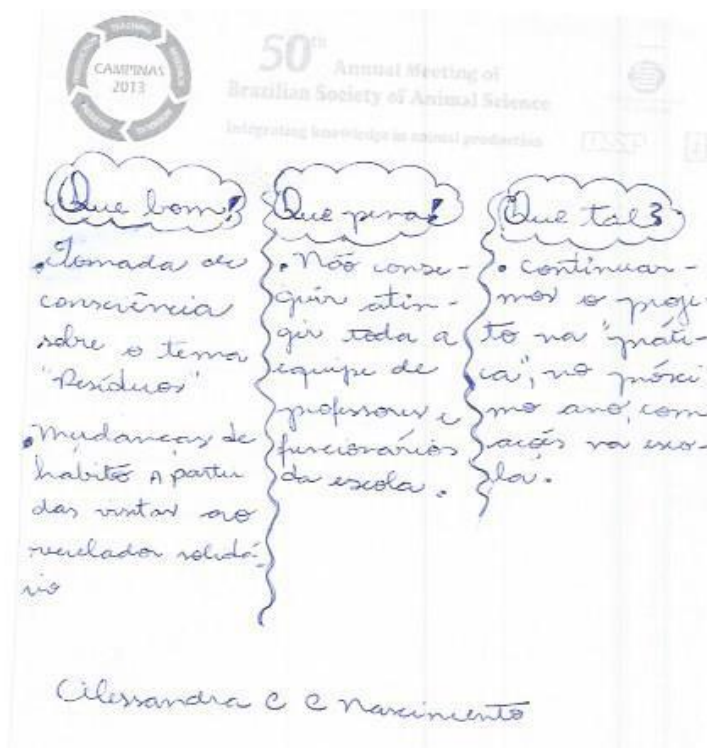 CAMPINAS
2013
50th Annual Meeting of
Brazilian Society of Animal Science
Integrating knowledge in animal production
Que bom!
. Tomada de
consciência
sobre o tema
"Resíduos"
. Mudanças de
hábito A partir
das visitas ao
reciclador solidá-
rio
Que pena!
. Não conse-
guir atin-
gir toda a
equipe de
professores e
funcionários
da escola.
Que tal?
. continuar-
mos o proje-
to na "práti-
ca", no próxi
mo ano, com
ações na esco-
la.
Alessandra C C Nascimento